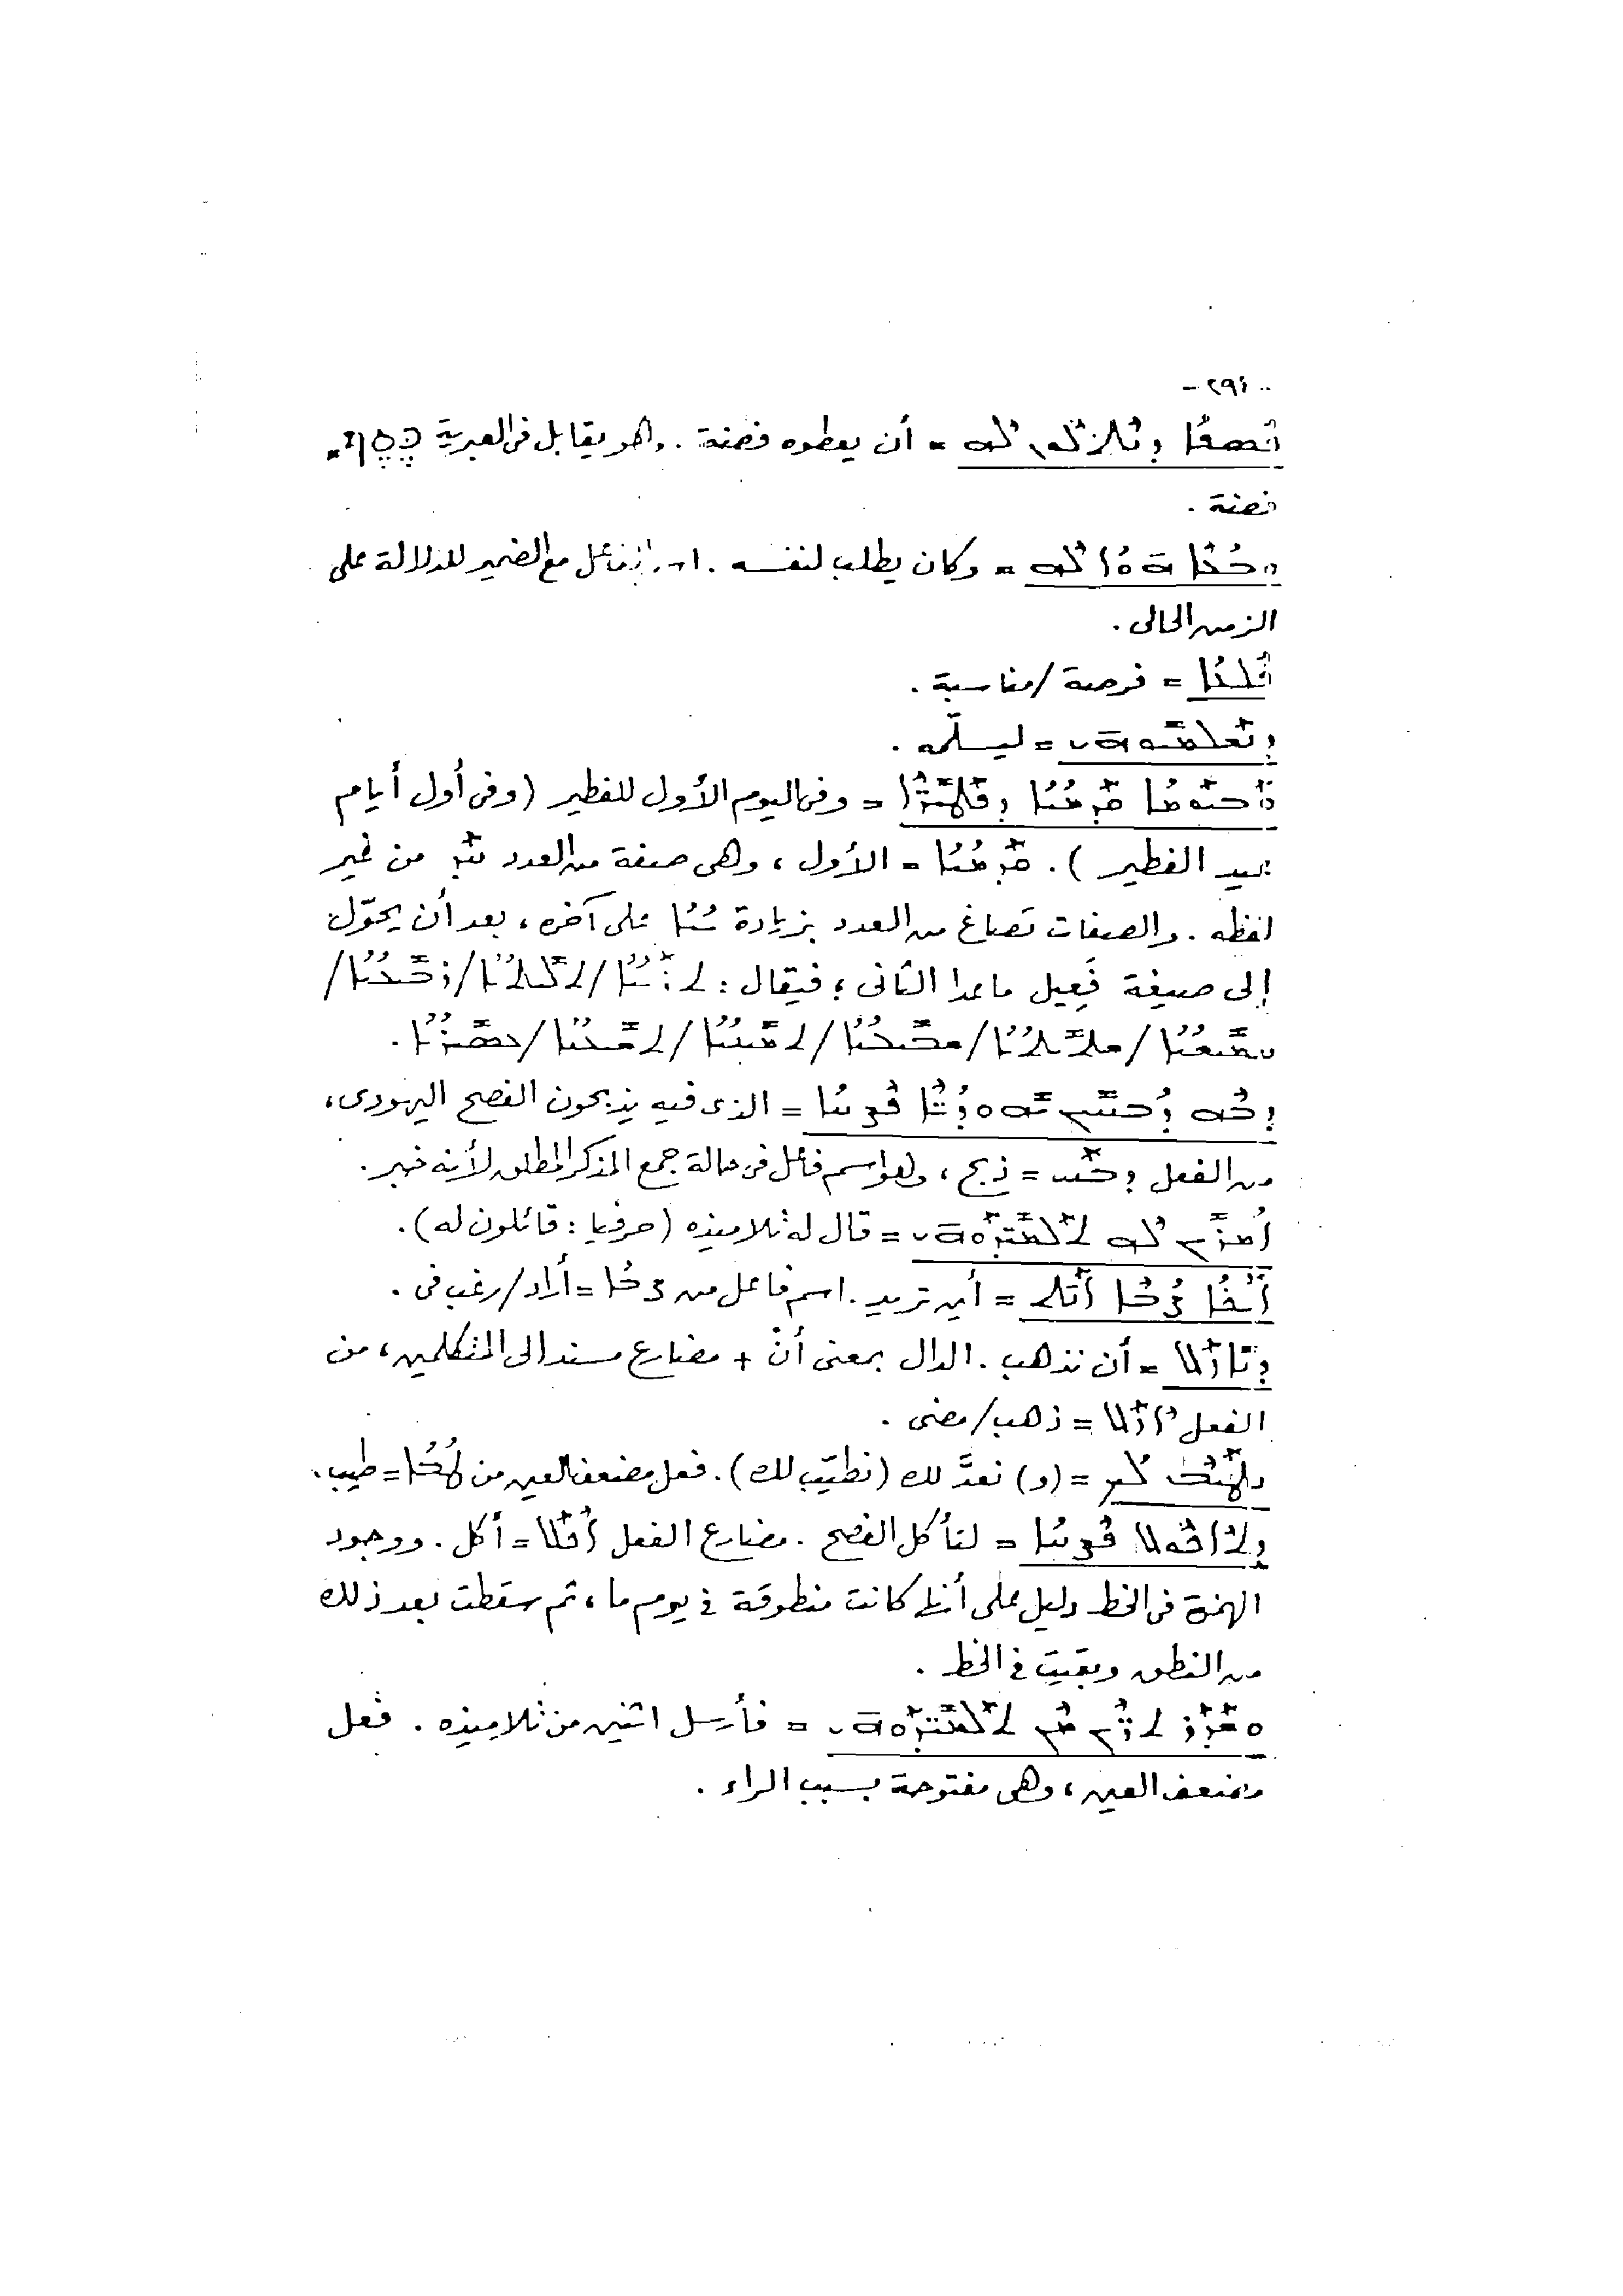 - ٢٩٤ -
ܟܣܦܐ ܕܢܬܠܘܢ ܠܗ = أن يعطوه فضة . وهو يقابل فى العبرية כֶּסֶף =
فضة .
ܘܒܥܐ ܗܘܐ ܠܗ = وكان يطلب لنفسه . اسم الفاعل مع الضمير للدلالة على
الزمن الحالى .
ܦܠܥܐ = فرصة / مناسبة .
ܕܢܫܠܡܝܘܗܝ = ليسلّمه .
ܘܒܝܘܡܐ ܩܕܡܝܐ ܕܦܛܝܪܐ = وفى اليوم الأول للفطير (وفى أول أيام
عيد الفطير) . ܩܕܡܝܐ = الأول ، وهى صفة من العدد ܚܕ من غير
لفظه . والصفات تصاغ من العدد بزيادة ܝܐ على آخره ، بعد أن يحوّل
إلى صيغة فَعِيل ماعدا الثانى ؛ فيقال : ܬܪܝܢܐ / ܬܠܝܬܝܐ / ܪܒܝܥܝܐ /
ܚܡܝܫܝܐ / ܫܬܝܬܝܐ / ܫܒܝܥܝܐ / ܬܡܝܢܝܐ / ܬܫܝܥܝܐ / ܥܣܝܪܝܐ .
ܕܒܗ ܕܒܚܝܢ ܝܗܘܕܝܐ ܦܨܚܐ = الذى فيه يذبحون الفصح اليهودى ،
من الفعل ܕܒܚ = ذبح ، وهو اسم فاعل فى حالة جمع المذكر المطلق لأنه خبر .
ܐܡܪܝܢ ܠܗ ܬܠܡܝܕܘܗܝ = قال له تلاميذه (حرفيا : قائلون له) .
ܐܝܟܐ ܨܒܐ ܐܢܬ = أين تريد . اسم فاعل من ܨܒܐ = أراد / رغب فى .
ܕܢܐܙܠ = أن نذهب . الدال بمعنى أنّ + مضارع مسند الى المتكلمين ، من
الفعل ܐܙܠ = ذهب / مضى .
ܢܛܝܒ ܠܟ = (و) نعدَّ لك (نطيّب لك) . فعل مضعف العين من ܛܒܐ = طيب .
ܕܬܐܟܘܠ ܦܨܚܐ = لتأكل الفصح . مضارع الفعل ܐܟܠ = أكل . ووجود
الهمزة فى الخط دليل على أنها كانت منطوقة فى يوم ما ، ثم سقطت بعد ذلك
من النطق وبقيت فى الخط .
ܘܫܕܪ ܬܪܝܢ ܡܢ ܬܠܡܝܕܘܗܝ = فأرسل اثنين من تلاميذه . فعل
مضعف العين ، وهى مفتوحة بسبب الراء .